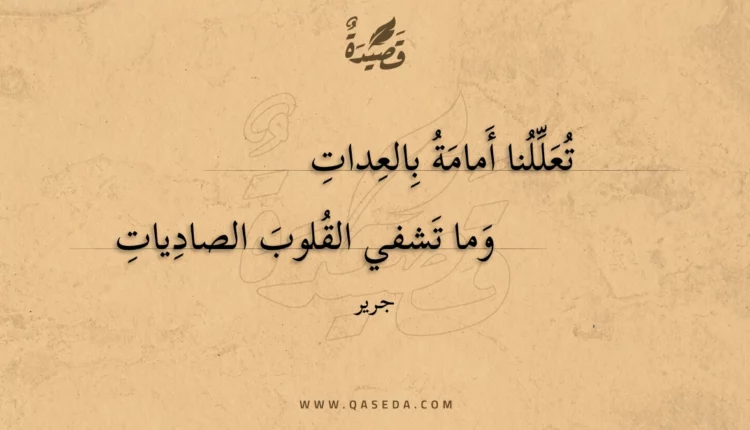 قَصِيْدَةٌ
تُعَلِّلُنا أَمامَةُ بِالعِداتِ
وَما تَشفي القُلوبَ الصادِياتِ
جرير
WWW.QASEDA.COM